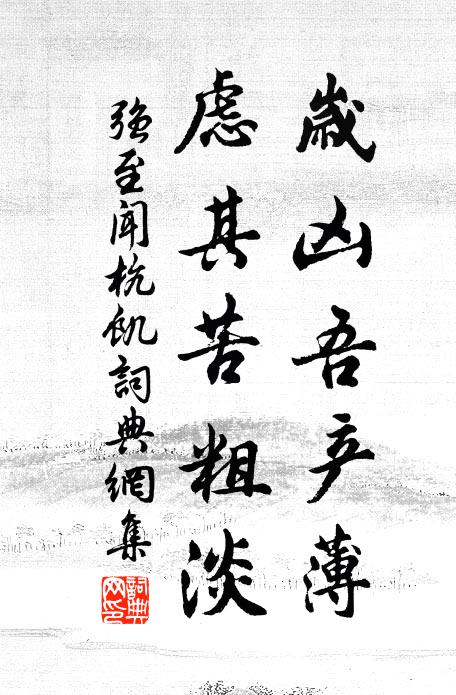 歲凶吾产薄
慮其苦粗淡
強至聞杭飢詞典網集
詞典
网印